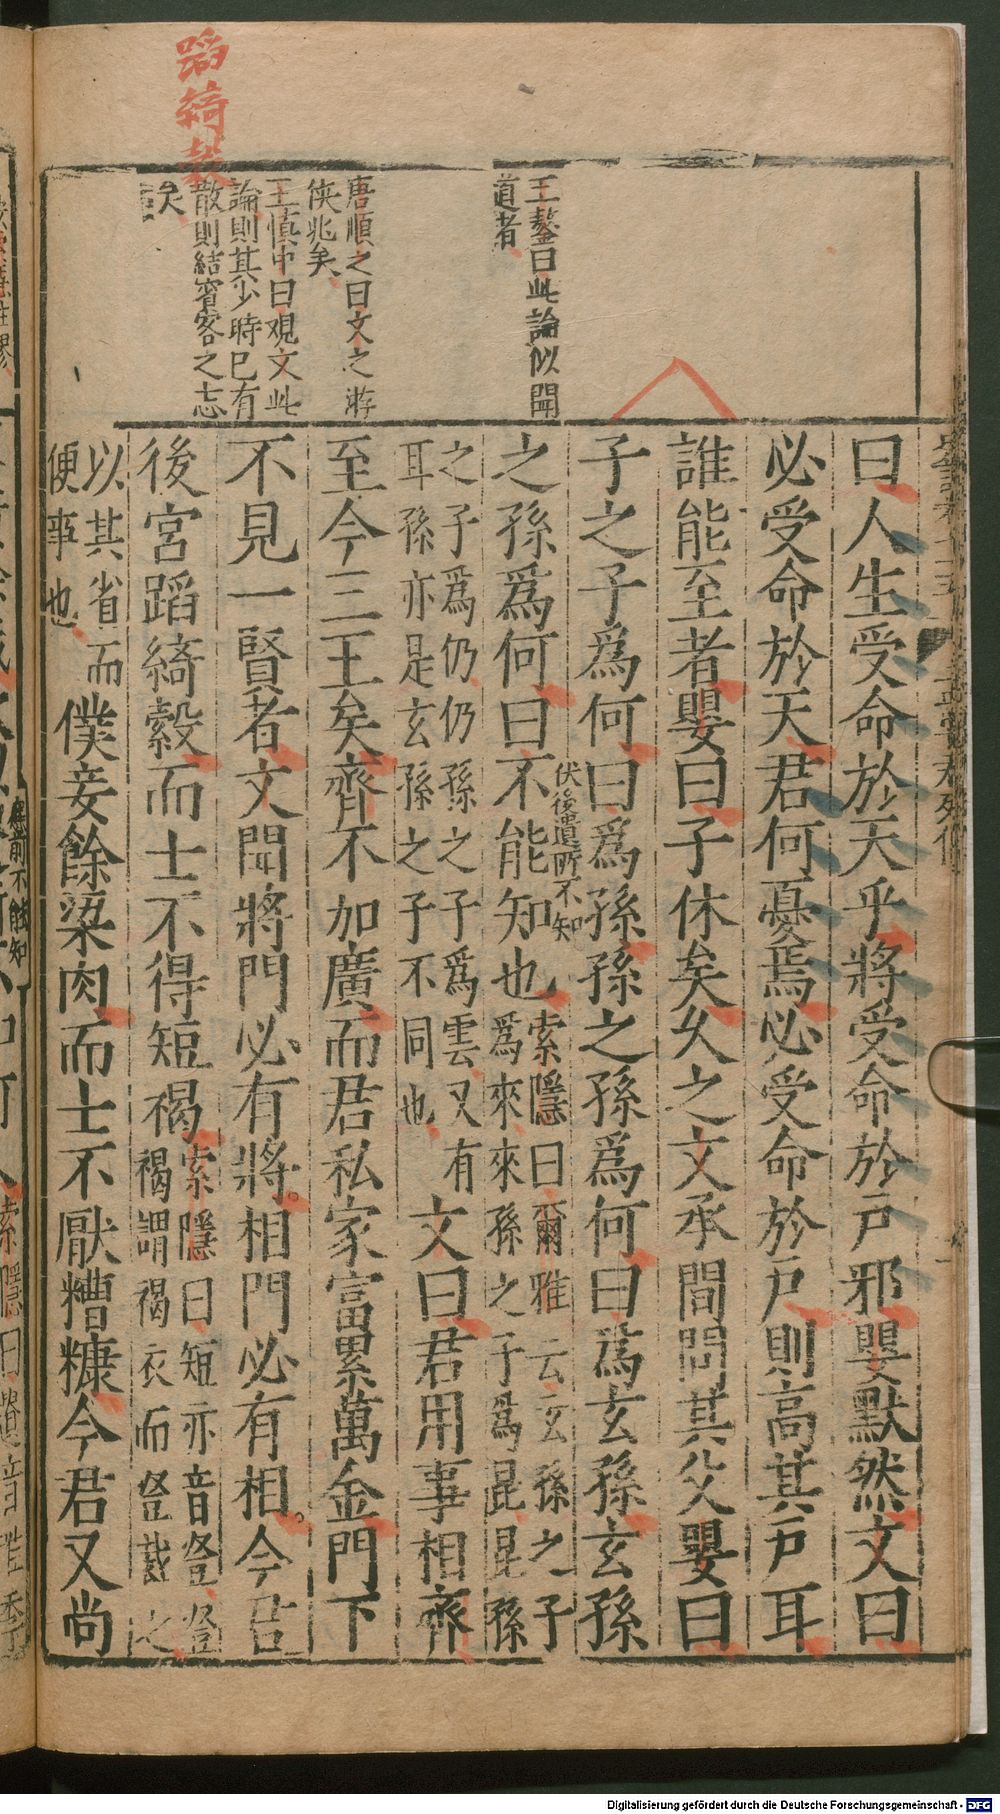 蹈綺縠
王鏊曰此論似聞
道者
唐順之曰文之游
俠兆矣
王慎中曰觀文此
論則其少時已有
散則結賓客之志
矣
曰人生受命於天乎將受命於戶邪嬰默然文曰
必受命於天君何憂焉必受命於戶則高其戶耳
誰能至者嬰曰子休矣久之文承間問其父嬰曰
子之子爲何曰爲孫孫之孫爲何曰爲玄孫玄孫
伏後遺所不知
之孫爲何曰不能知也
索隱曰爾雅云玄孫之子
爲來來孫之子爲昆昆孫
之子爲仍仍孫之子爲雲又有
耳孫亦是玄孫之子不同也
文曰君用事相齊
至今三王矣齊不加廣而君私家富累萬金門下
不見一賢者文聞將門必有將相門必有相今君
後宮蹈綺縠而士不得短褐
索隱曰短亦音豎豎
褐謂褐衣而豎裁之
以其省而
便事也
僕妾餘粱肉而士不厭糟糠今君又尚
應前不能知
Digitalisierung gefördert durch die Deutsche Forschungsgemeinschaft - DFG